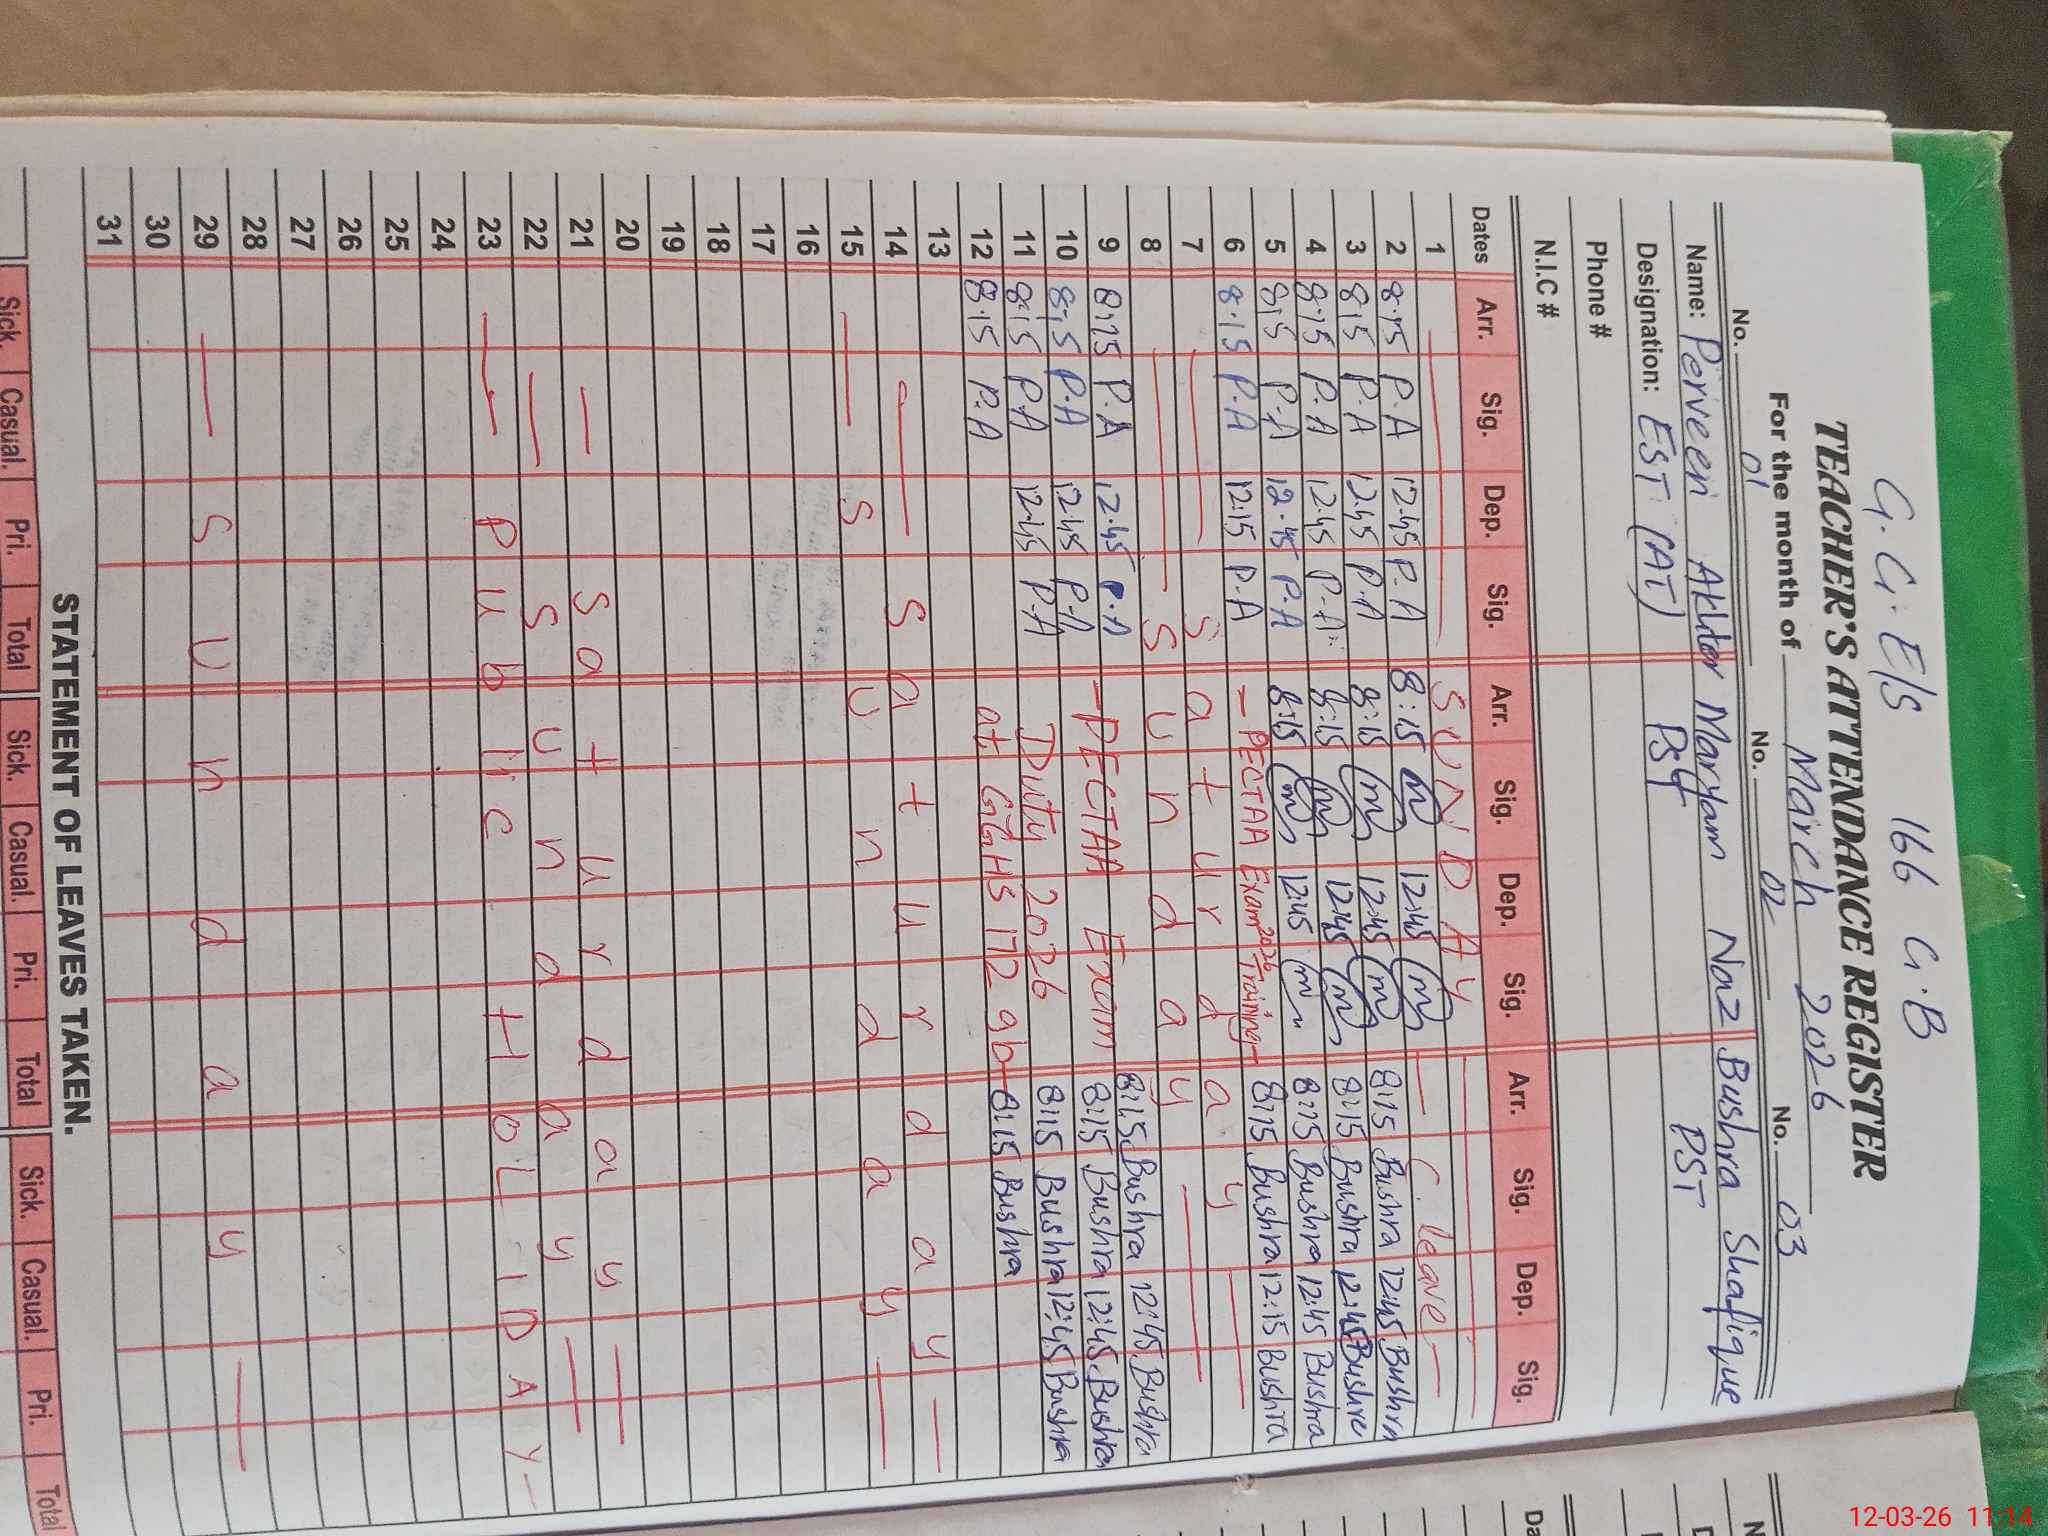 G.G.E/S 166 G.B
TEACHER'S ATTENDANCE REGISTER
For the month of March 2026
No. 01 No. 02 No. 03
Name: Perveen Akhter Maryam Naz Bushra Shafique
Designation: EST (AT) PST PST
Phone #
N.I.C #
Dates Arr. Sig. Dep. Sig. Arr. Sig. Dep. Sig. Arr. Sig. Dep. Sig.
1 SUNDAY
2 8:15 P.A 12:45 P.A 8:15 12:45 C. leave
3 8:15 P.A 12:45 P.A 8:15 12:45 8:15 Bushra 12:45 Bushra
4 8:15 P.A 12:45 P.A 8:15 12:45 8:15 Bushra 12:45 Bushra
5 8:15 P.A 12:45 P.A 8:15 12:45 8:15 Bushra 12:45 Bushra
6 8:15 P.A 12:15 P.A – PECTAA Exam 2026 Training – 8:15 Bushra 12:15 Bushra
7 Saturday
8 Sunday
9 8:15 P.A 12:45 P.A – PECTAA Exam 8:15 Bushra 12:45 Bushra
10 8:15 P.A 12:45 P.A Duty 2026 8:15 Bushra 12:45 Bushra
11 8:15 P.A 12:45 P.A at GGHS 172 gb 8:15 Bushra 12:45 Bushra
12 8:15 P.A 8:15 Bushra
13
14 Saturday
15 Sunday
16
17
18
19
20
21 Saturday
22 Sunday
23 Public HOLIDAY
24
25
26
27
28
29 Sunday
30
31
STATEMENT OF LEAVES TAKEN.
Sick. Casual. Pri. Total Sick. Casual. Pri. Total Sick. Casual. Pri. Total
12-03-26 11:14